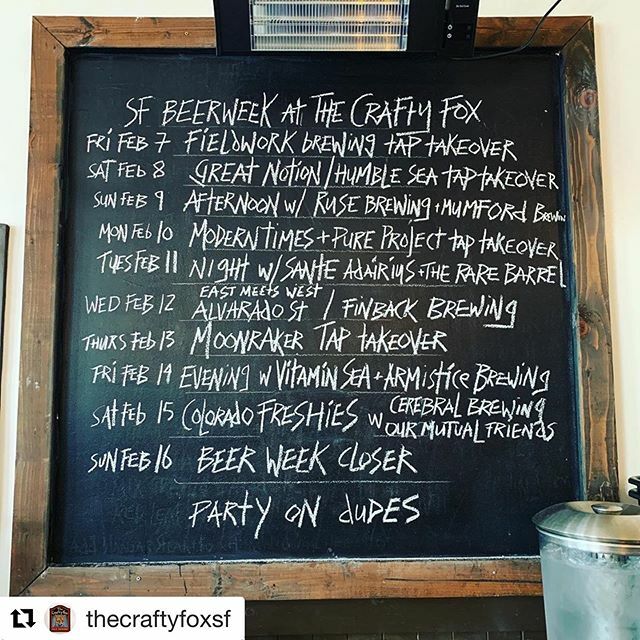 SF BEERWEEK AT THE CRAFTY FOX
FRI FEB 7 FIELDWORK BREWING TAP TAKEOVER
SAT FEB 8 GREAT NOTION / HUMBLE SEA TAP TAKEOVER
SUN FEB 9 AFTERNOON W/ RUSE BREWING + MUMFORD BREWIN
MON FEB 10 MODERN TIMES + PURE PROJECT TAP TAKEOVER
TUES FEB 11 NIGHT W/ SANTE ADAIRIUS + THE RARE BARREL
EAST MEETS WEST
WED FEB 12 ALVARADO ST / FINBACK BREWING
THURS FEB 13 MOONRAKER TAP TAKEOVER
FRI FEB 14 EVENING W VITAMIN SEA + ARMISTICE BREWING
SAT FEB 15 COLORADO FRESHIES W CEREBRAL BREWING
OUR MUTUAL FRIENDS
SUN FEB 16 BEER WEEK CLOSER
PARTY ON DUDES
thecraftyfoxsf